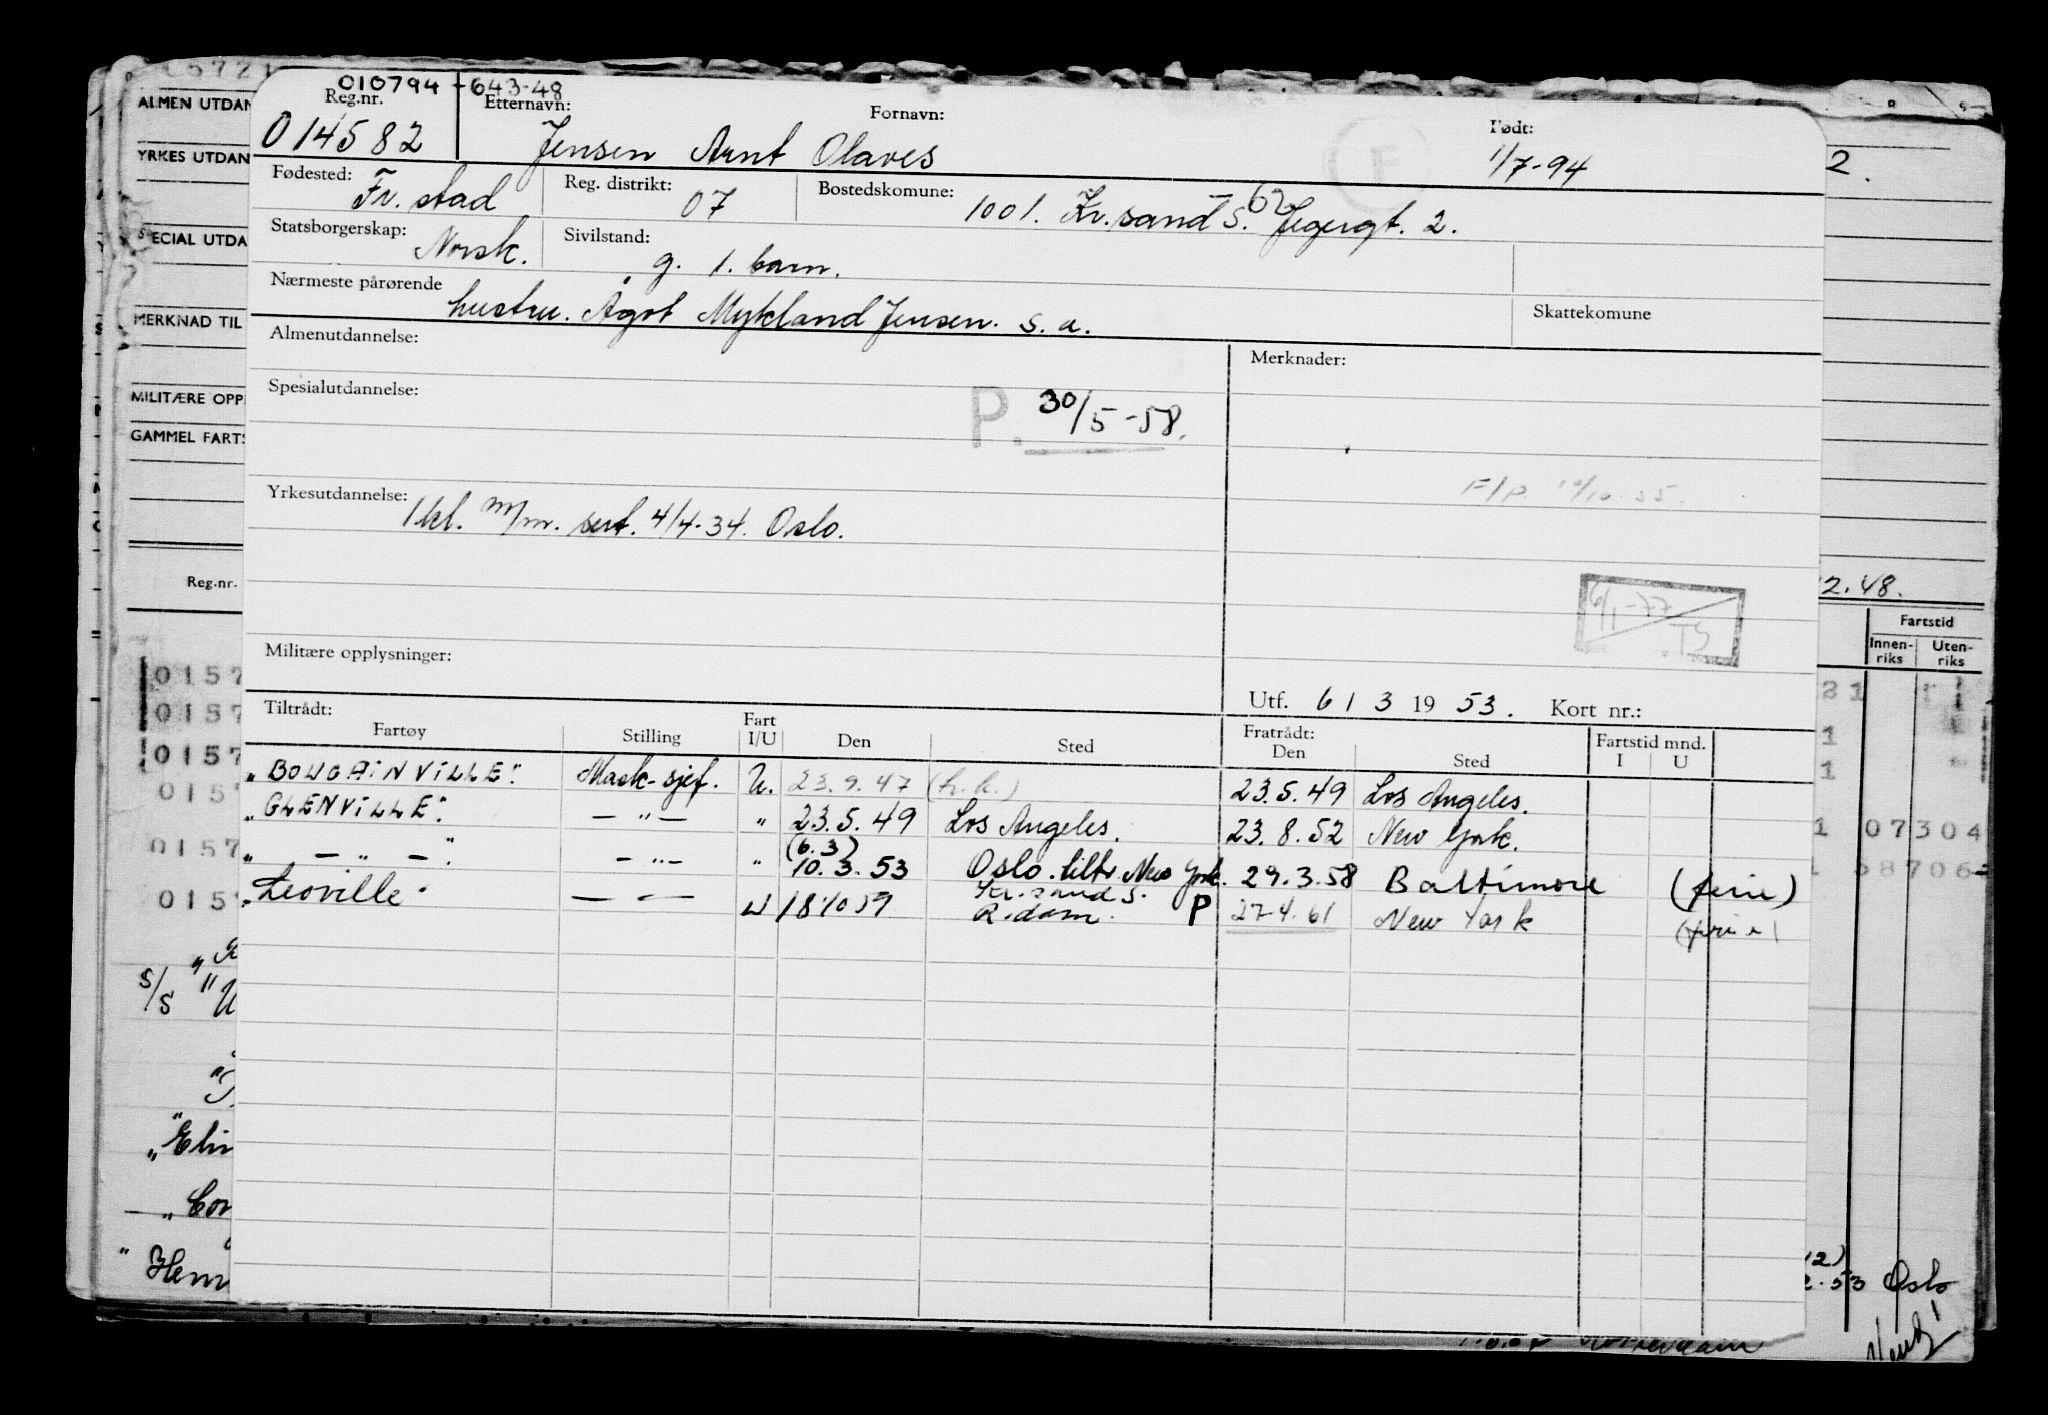 010794-643-48
Reg.nr. Etternavn: Fornavn: Født:
014582 Jensen Arnt Olaves 1/7-94
Fødested: Fr. stad Reg. distrikt: 07 Bostedskomune: 1001. Kr.sand S. 62 Jegersgt. 2.
Statsborgerskap: Norsk. Sivilstand: g. 1. barn.
Nærmeste pårørende hustru. Agot Mykland Jensen. s. a. Skattekomune
Almenutdannelse: Merknader:
Spesialutdannelse: P. 30/5-58.
F/P.
Yrkesutdannelse: 1 kl. m/m. sert. 4/4-34. Oslo.
6/1-77 TS
Militære opplysninger:
Utf. 6 / 3 19 53. Kort nr.:
Tiltrådt: Fratrådt:
Fartøy Stilling Fart I/U Den Sted Den Sted Fartstid mnd. I U
"BOUGAINVILLE" Mask-sjef. U. 23.9.47 (h.k.) 23.5.49 Los Angeles.
"GLENVILLE" — " — " 23.5.49 Los Angeles. 23.8.52 New York.
(6.3)
" — " — " — " — " 10.3.53 Oslo. tiltr. New York. 29.3.58 Baltimore (ferie)
Kr.sand S.
"Leoville" — " — U 18/10 59 R.dam. P 27-4.61 New York (ferie)
ALMEN UTDAN
YRKES UTDAN 2.
SPECIAL UTDA
MERKNAD TIL
MILITÆRE OPP
GAMMEL FARTS
Reg.nr. 2.48.
Fartstid
Innenriks Utenriks
0157
0157
0157
0157
0157 07304
0157 58706
S/S "U
"Elin
"Cor
"Hem
2.53 Oslo